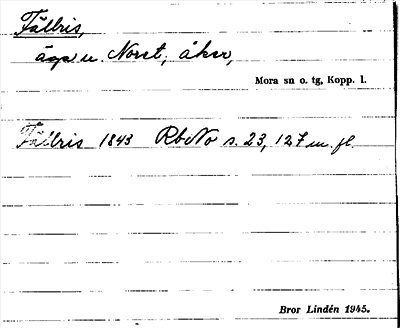 Fällris,
äga u. Noret; åker,
Mora sn o. tg, Kopp. l.
Fällris 1843 RbNo s. 23, 127 m. fl.
Bror Lindén 1945.